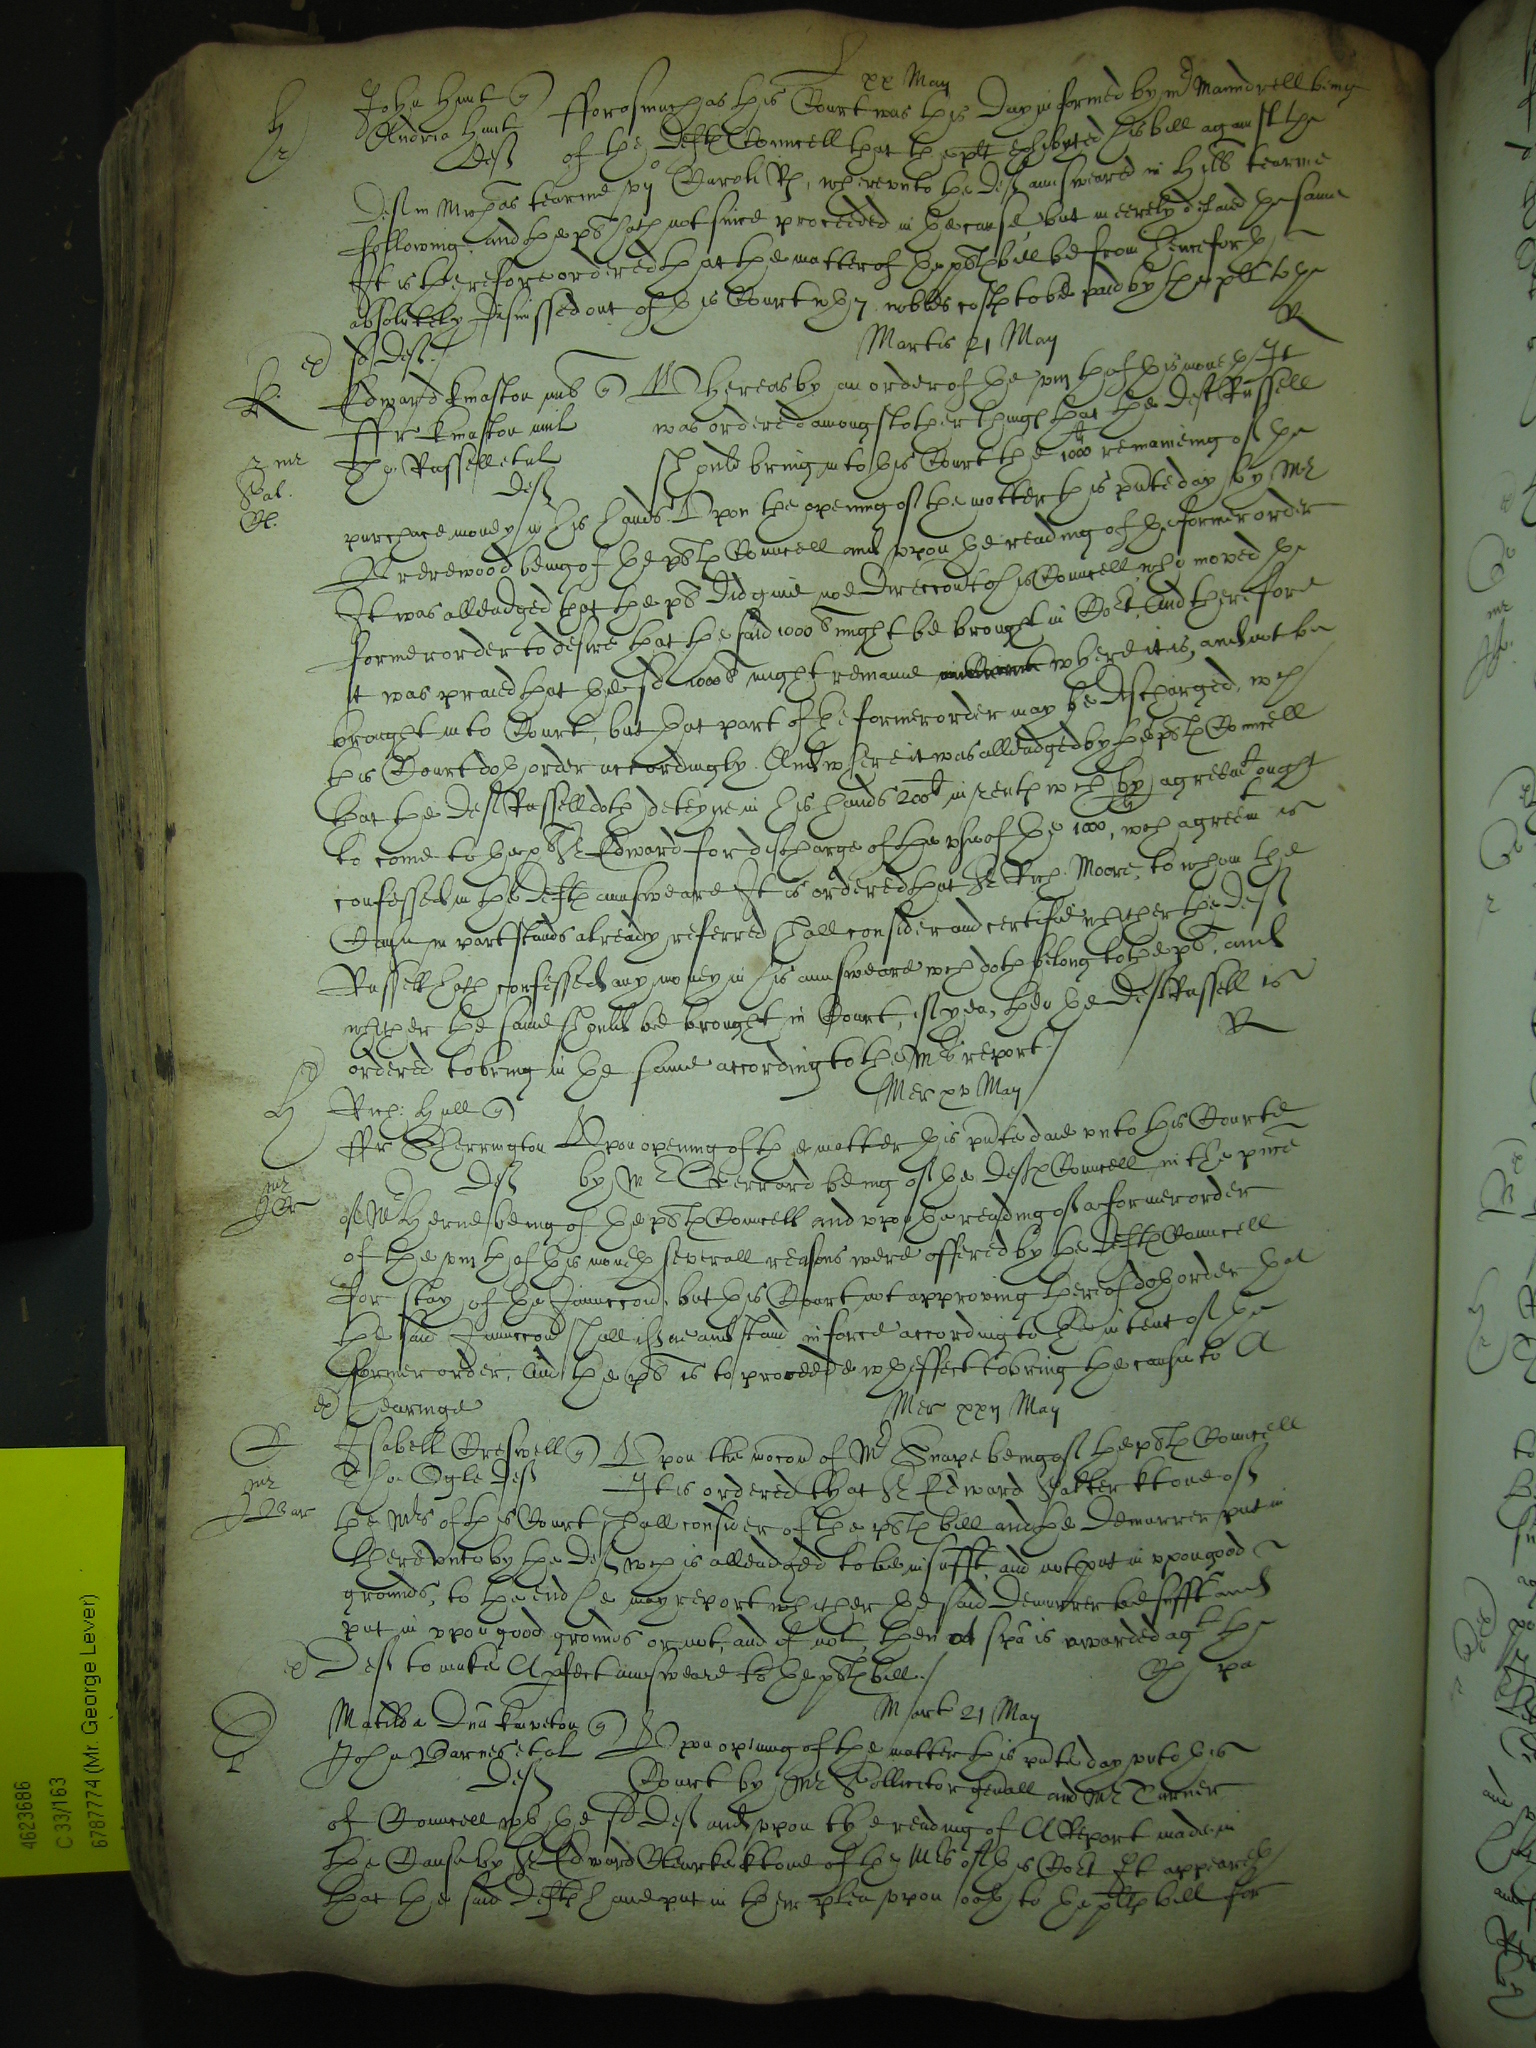 xx May
John Hunt
Andrew Hunt
Deft
Fforasmuch as this Court was this Day informed by Mr Maundrell being
of the Defts Councell that the plt exhibited his bill against the
Deft in Michas tearme Caroli Rs, whereunto the Deft aunsweared in Hill tearme
following and the pl hath not since proceeded in the cause, but meerely delaied the same
It is therefore ordered that the matter of the plts bill be from henceforth
absolutely dismissed out of this Court wth 7 nobles costs to be paid by the plt to the
sd Deft./
R
Martis 21 May
Edward kinaston
ffr kinaston
Tho: Russell et al
Deft
Whereas by an order of the viijth of this moneth It
was ordered amongst other things that the Deft Russell
should bring into this Court the 1000 remaineing of the
purchase money in his hands. Upon the opening of the matter this pnte day by Mr
being of the pls Councell and upon the reading of the former order
It was alleadged that the pl did give noe Direccon to his Councell, who moved the
former order to desire that the said 1000 might be brought in Cort, And therefore
it was praied that the sd 1000 might remaine where it is, and not be
brought into Court, but that part of the former order may be discharged, wch
this Court doth order accordingly. And where it was alleadged by the pls Councell
that the Deft Russell doth deteyne in his hands 200 in rents wch by agreemt ought
to come to the pl Sr Edward for discharge of the use of the 1000, wch agreemt is
confessed in the Defts aunsweare It is ordered that Sr Rich: Moore, to whom the
Cause in part stands already referred shall consider and certifie whether the Deft
Russell hath confessed any money in his aunsweare wch doth belong to the pl, and
whether the same should be brought in Court, if yea, then the Deft Russell is
ordered to bring in the same according to the Mrs report./
R
Mer xv May
Rich: Hull
ffr Sherrington
Deft
Upon opening of the matter this pnte daie unto this Courte
by Mr Gerrard being of the Defts Councell in the pnce
of Mr Herne being of the pls Councell and upon the reading of a former order
of the viijth of this moneth severall reasons were offered by the Defts Councell
for stay of the Iniunccon, but this Court not approving thereof doth order that
the said Iniunccon shall issue and stand in force according to the intent of the
former order, And the pl is to proceede wth effect to bring the cause to A
hearinge
Mer xxij May
Isabell Creswell
Tho: Ogle Deft
Upon the mocon of Mr Snape being of the pls Councell
It is ordered that Sr Edward one of
the Mrs of this Court shall consider of the pls bill and the Demurrer put in
thereunto by the Deft wch is alleadged to be insufft, and not put in upon good
grounds, to the end he may report whether the said Demurrer be sufft and
put in upon good grounds or not, and if not, then a spa is awarded agt the
Deft to make A pfect aunsweare to the pls bill./
Mart 21 May
Matilda
John Barnes et al
Deft
Upon opening of the matter this pnte day unto this
Court by Mr Sollicitor genall and Mr Turner
of Councell wth the sd Deft and upon the reading of A Report made in
the Cause by Sr Edward one of the Mrs of this Cort It appeareth
that the said Defts have put in their plea upon oath to the plts bill for
4623686
C 33/163
6787774 (Mr. George Lever)